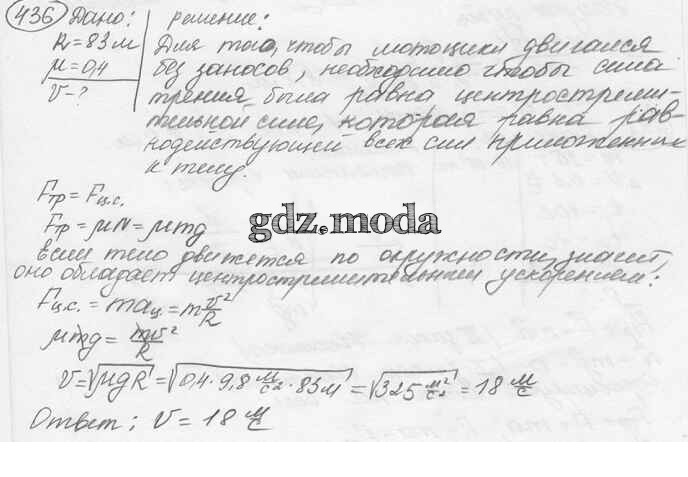 436 Дано: Решение:
R = 83 м Для того, чтобы мотоцикл двигался
μ = 0,4 без заносов, необходимо чтобы сила
V - ? трения была равна центростреми-
тельной силе, которая равна рав-
нодействующей всех сил приложенных
к телу.
Fтр = Fц.с.
gdz.moda
Fтр = μN = μmg
Если тело движется по окружности, значит,
оно обладает центростремительным ускорением:
Fц.с. = maц = m v²/R
μmg = mv²/R
V = √μgR = √0,4 · 9,8 м/с² · 83 м = √325 м²/с² = 18 м/с
Ответ: V = 18 м/с